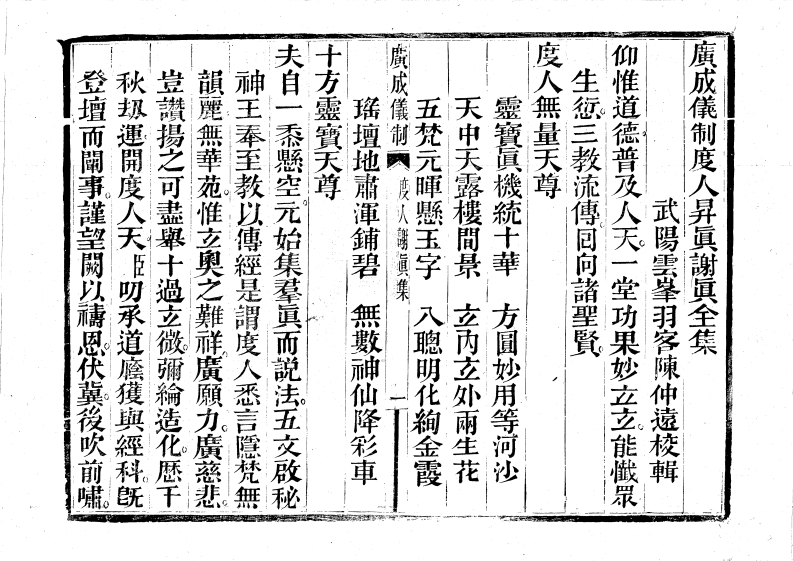 廣成儀制度人昇眞謝眞全集
武陽雲峯羽客陳仲遠校輯
仰惟道德普及人天。一堂功果妙立立。能懺眾
生愆。三教流傳。囘向諸聖賢。
度人無量天尊
靈寶眞機統十華　方圓妙用等河沙
天中天露樓間景　立內立外兩生花
五梵元暉懸玉字　八聰明化絢金霞
瑤壇地肅渾鋪碧　無數神仙降彩車
廣成儀制　度人謝眞集　一
十方靈寶天尊
夫自一黍懸空。元始集羣眞而說法。五文啟秘
神王奉至教以傳經。是謂度人。悉言隱梵。無
韻麗無華苑。惟立奧之難祥。廣願力。廣慈悲。
豈讚揚之可盡。舉十過立微。彌綸造化。歷千
秋刼運。開度人天。臣叨承道廕。獲與經科。旣
登壇而闡事。謹望闕以禱恩。伏冀後吹前嘯。